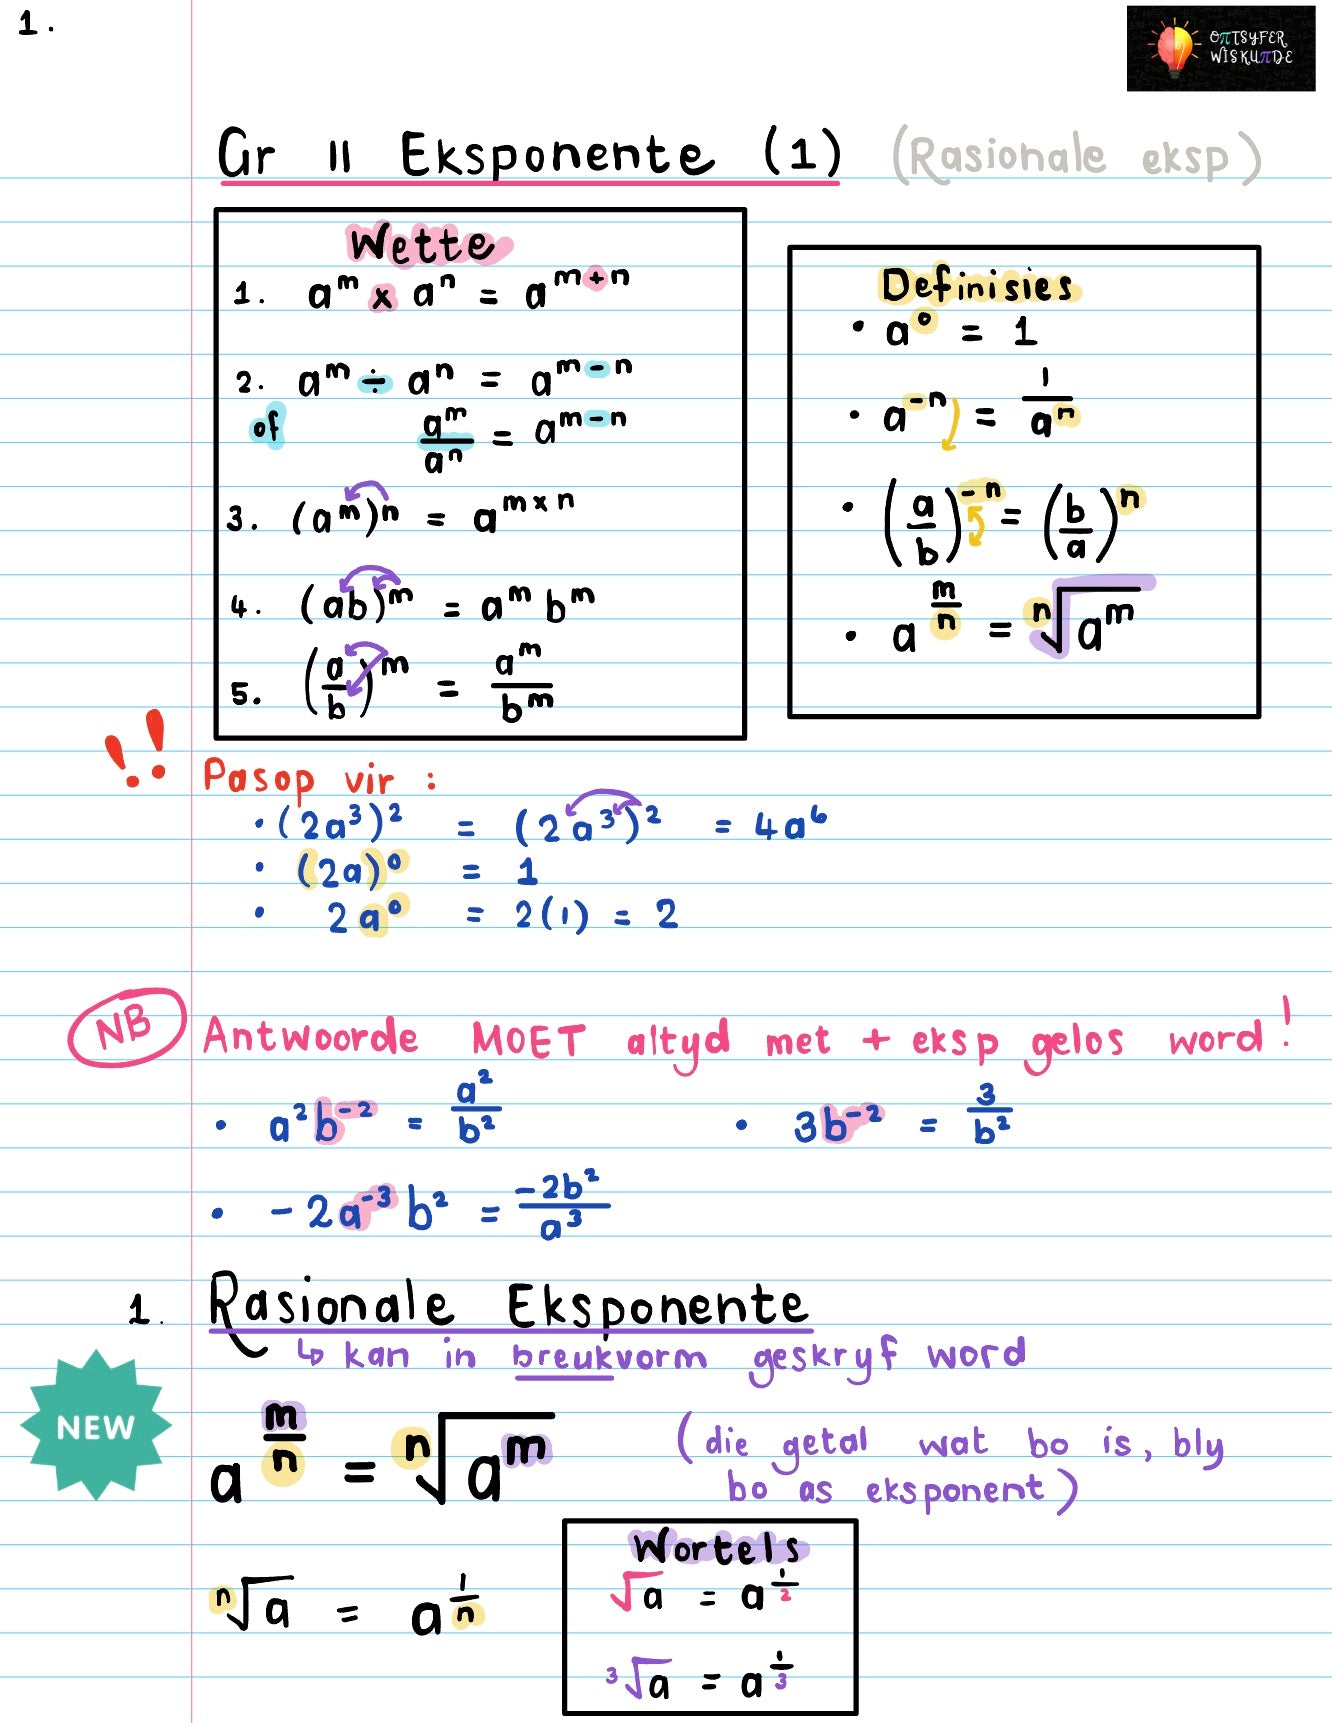 1.
OπTSYFER
WISKUπDE
Gr 11 Eksponente (1) (Rasionale eksp)
Wette
1. a^m × a^n = a^(m+n)
2. a^m ÷ a^n = a^(m-n)
of a^m/a^n = a^(m-n)
3. (a^m)^n = a^(m×n)
4. (ab)^m = a^m b^m
5. (a/b)^m = a^m/b^m
Definisies
• a^0 = 1
• a^(-n) = 1/a^n
• (a/b)^(-n) = (b/a)^n
• a^(m/n) = ⁿ√(a^m)
!! Pasop vir :
• (2a³)² = (2a³)² = 4a⁶
• (2a)⁰ = 1
• 2a⁰ = 2(1) = 2
NB Antwoorde MOET altyd met + eksp gelos word!
• a²b⁻² = a²/b² • 3b⁻² = 3/b²
• -2a⁻³b² = -2b²/a³
1. Rasionale Eksponente
↳ kan in breukvorm geskryf word
NEW
a^(m/n) = ⁿ√(a^m) (die getal wat bo is, bly
bo as eksponent)
ⁿ√a = a^(1/n)
Wortels
√a = a^(1/2)
³√a = a^(1/3)